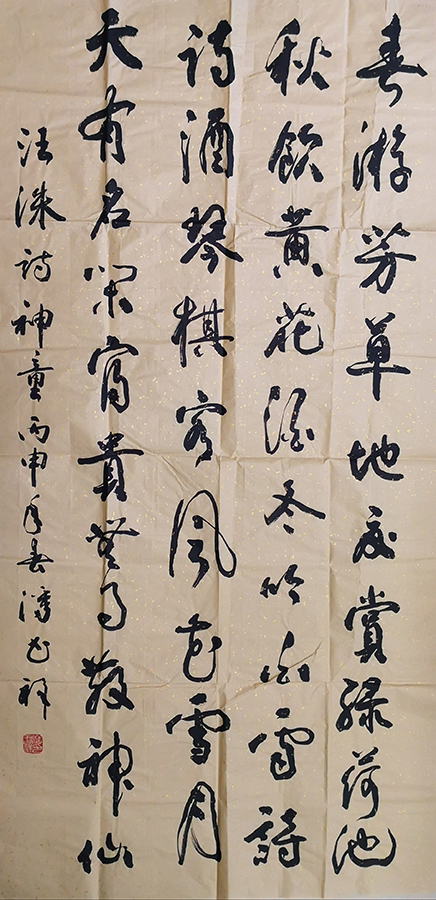 春游芳草地夏賞绿荷池
秋飲黄花酒冬吟白雪詩
诗酒琴棋客风花雪月
天有名闲富貴無事散神仙
汪洙诗神童丙申年春潘祥